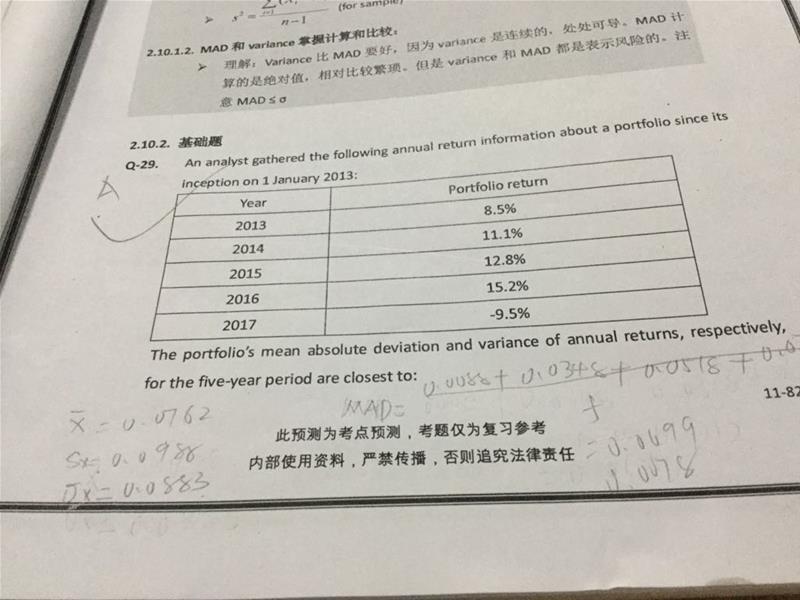 s² = n-1 (for sample)
2.10.1.2. MAD 和 variance 掌握计算和比较：
➢ 理解：Variance 比 MAD 要好，因为 variance 是连续的，处处可导。MAD 计
算的是绝对值，相对比较繁琐。但是 variance 和 MAD 都是表示风险的。注
意 MAD ≤ σ
2.10.2. 基础题
Q-29. An analyst gathered the following annual return information about a portfolio since its
inception on 1 January 2013:
A
Year Portfolio return
2013 8.5%
2014 11.1%
2015 12.8%
2016 15.2%
2017 -9.5%
The portfolio's mean absolute deviation and variance of annual returns, respectively,
for the five-year period are closest to:
MAD= 0.0088 + 0.0348 + 0.0518 + 0.0
x̄ = 0.0762
Sx= 0.0988
σx = 0.0883
= 0.0699
0.0078
11-82
此预测为考点预测，考题仅为复习参考
内部使用资料，严禁传播，否则追究法律责任